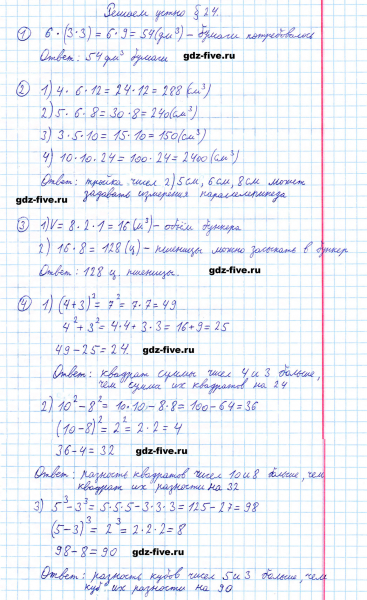 Решаем устно § 24.
1 6 · (3·3) = 6·9 = 54 (дм³) – бумаги потребовалось
Ответ: 54 дм³ бумаги
gdz-five.ru
2 1) 4 · 6 · 12 = 24 · 12 = 288 (см³)
gdz-five.ru
2) 5 · 6 · 8 = 30 · 8 = 240 (см³)
3) 3 · 5 · 10 = 15 · 10 = 150 (см³)
4) 10 · 10 · 24 = 100 · 24 = 2400 (см³)
Ответ: тройка чисел 2) 5 см, 6 см, 8 см может
gdz-five.ru задавать измерения параллелепипеда
3 1) V = 8 · 2 · 1 = 16 (м³) – объём бункера
2) 16 · 8 = 128 (ц) – пшеницы можно засыпать в бункер
gdz-five.ru
Ответ: 128 ц. пшеницы.
4 1) (4+3)² = 7² = 7 · 7 = 49
4² + 3² = 4·4 + 3·3 = 16 + 9 = 25
49 – 25 = 24. gdz-five.ru
Ответ: квадрат суммы чисел 4 и 3 больше,
чем сумма их квадратов на 24
2) 10² – 8² = 10·10 – 8·8 = 100 – 64 = 36
(10 – 8)² = 2² = 2 · 2 = 4
36 – 4 = 32 gdz-five.ru
Ответ: разность квадратов чисел 10 и 8 больше, чем
квадрат их разности на 32
3) 5³ – 3³ = 5·5·5 – 3·3·3 = 125 – 27 = 98
(5 – 3)³ = 2³ = 2 · 2 · 2 = 8
98 – 8 = 90 gdz-five.ru
Ответ: разность кубов чисел 5 и 3 больше, чем
куб их разности на 90